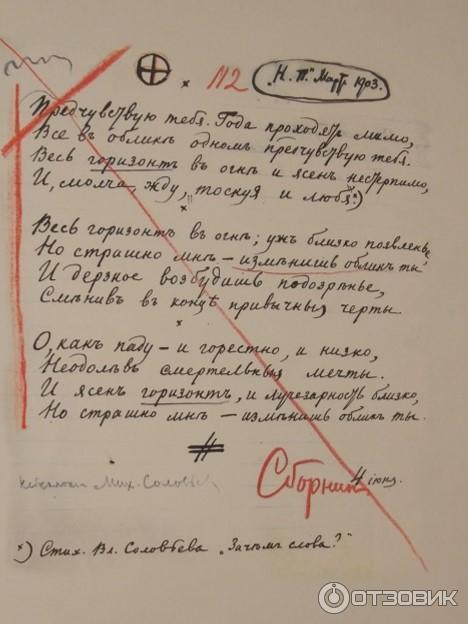 112 „Н. П." Мартъ 1903.
Предчувствую тебя. Года проходятъ мимо,
Все въ обликѣ одномъ предчувствую тебя.
Весь горизонтъ въ огнѣ и ясенъ нестерпимо,
И, молча, жду, тоскуя и любя.ˣ)
Весь горизонтъ въ огнѣ; ужъ близко появленье,
Но страшно мнѣ – измѣнишь обликъ ты,
И дерзкое возбудишь подозрѣнье,
Смѣнивъ въ концѣ привычныя черты.
О, какъ паду – и горестно, и низко,
Неодолѣвъ смертельныя мечты.
И ясенъ горизонтъ, и лучезарность близко,
Но страшно мнѣ – измѣнишь обликъ ты.
4 іюня.
Сборник
Мих. Соловьев
ˣ) Стих. Вл. Соловьева „Зачѣмъ слова?"
ОТЗОВИК